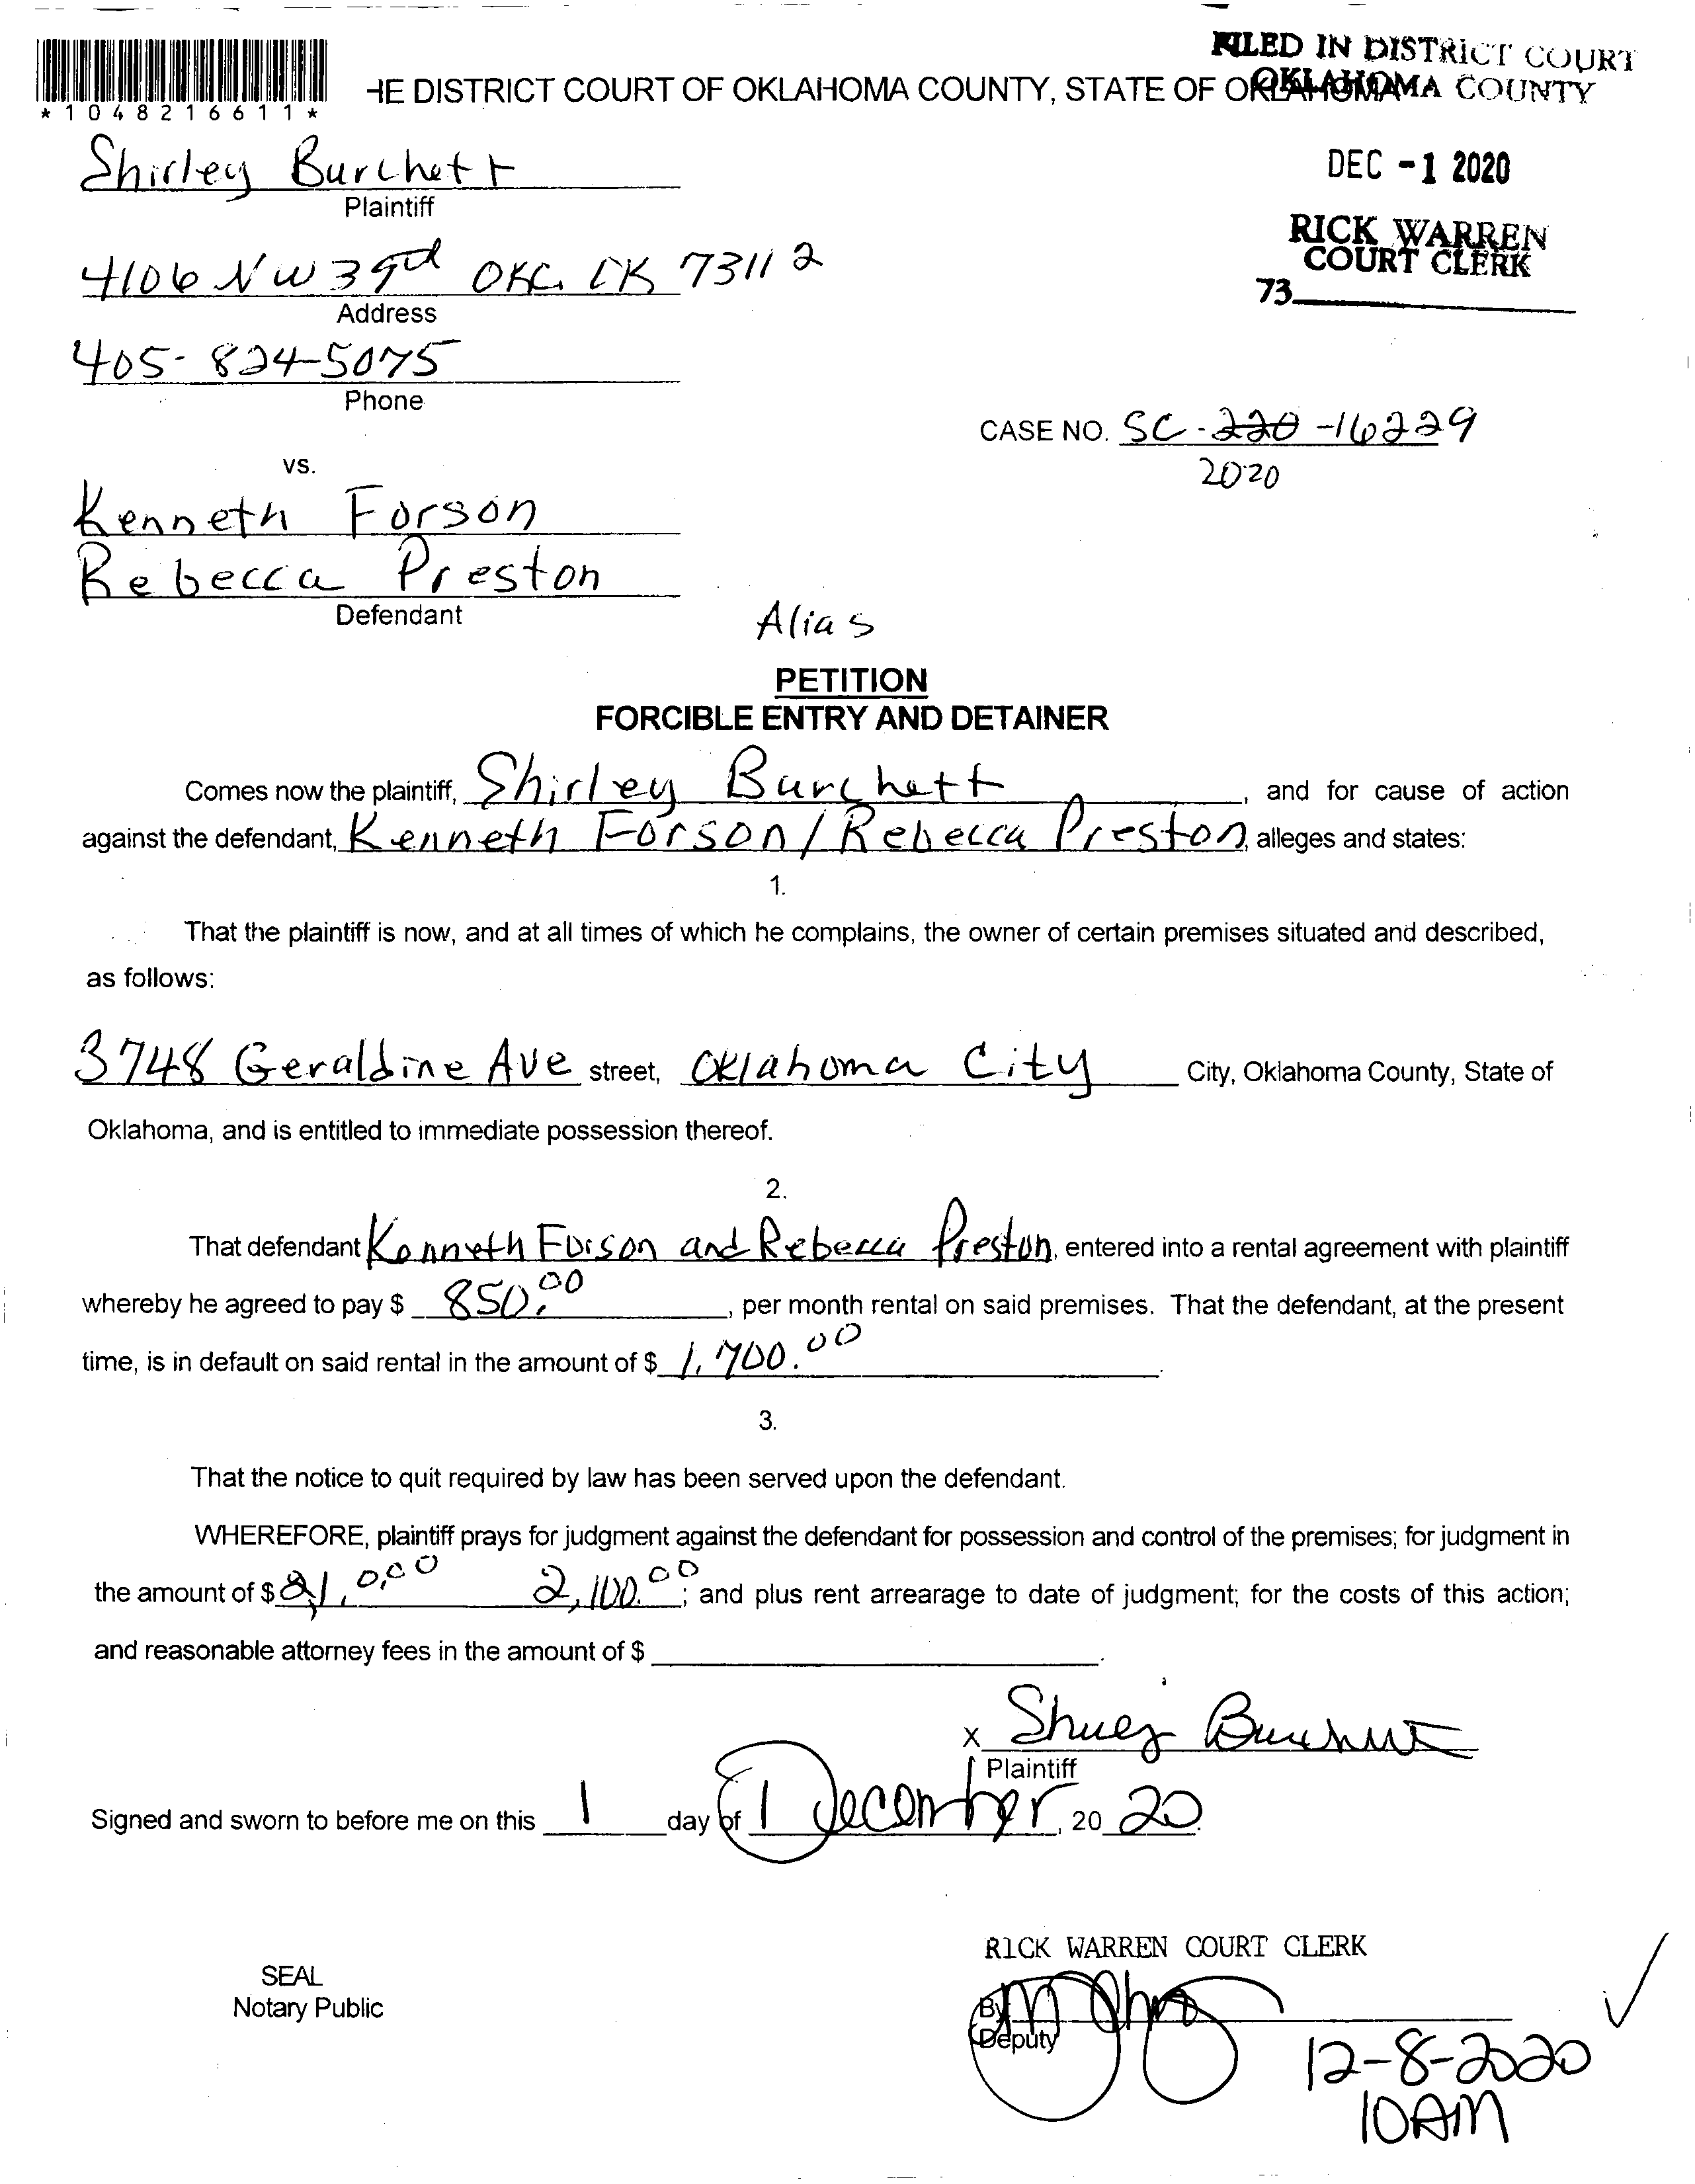 FILED IN DISTRICT COURT
HE DISTRICT COURT OF OKLAHOMA COUNTY, STATE OF OKLAHOMA
OKLAHOMA COUNTY
*1048216611*
Shirley Burchett
Plaintiff
DEC -1 2020
RICK WARREN
COURT CLERK
73
4106 NW 39rd OKC. OK 73112
Address
405-824-5075
Phone
CASE NO. SC-220-16229
2020
vs.
Kenneth Forson
Rebecca Preston
Defendant
Alias
PETITION
FORCIBLE ENTRY AND DETAINER
Comes now the plaintiff, Shirley Burchett, and for cause of action
against the defendant, Kenneth Forson/Rebecca Preston, alleges and states:
1.
That the plaintiff is now, and at all times of which he complains, the owner of certain premises situated and described,
as follows:
3748 Geraldine Ave street, Oklahoma City City, Oklahoma County, State of
Oklahoma, and is entitled to immediate possession thereof.
2.
That defendant Kenneth Forson and Rebecca Preston, entered into a rental agreement with plaintiff
whereby he agreed to pay $ 850.00, per month rental on said premises. That the defendant, at the present
time, is in default on said rental in the amount of $ 1,700.00.
3.
That the notice to quit required by law has been served upon the defendant.
WHEREFORE, plaintiff prays for judgment against the defendant for possession and control of the premises; for judgment in
the amount of $ 21,0,00 2,100.00; and plus rent arrearage to date of judgment; for the costs of this action;
and reasonable attorney fees in the amount of $ .
X Shirley Burchett
Plaintiff
Signed and sworn to before me on this 1 day of 1 December, 20 20.
RICK WARREN COURT CLERK
SEAL
Notary Public
By
Deputy
12-8-2020
10AM